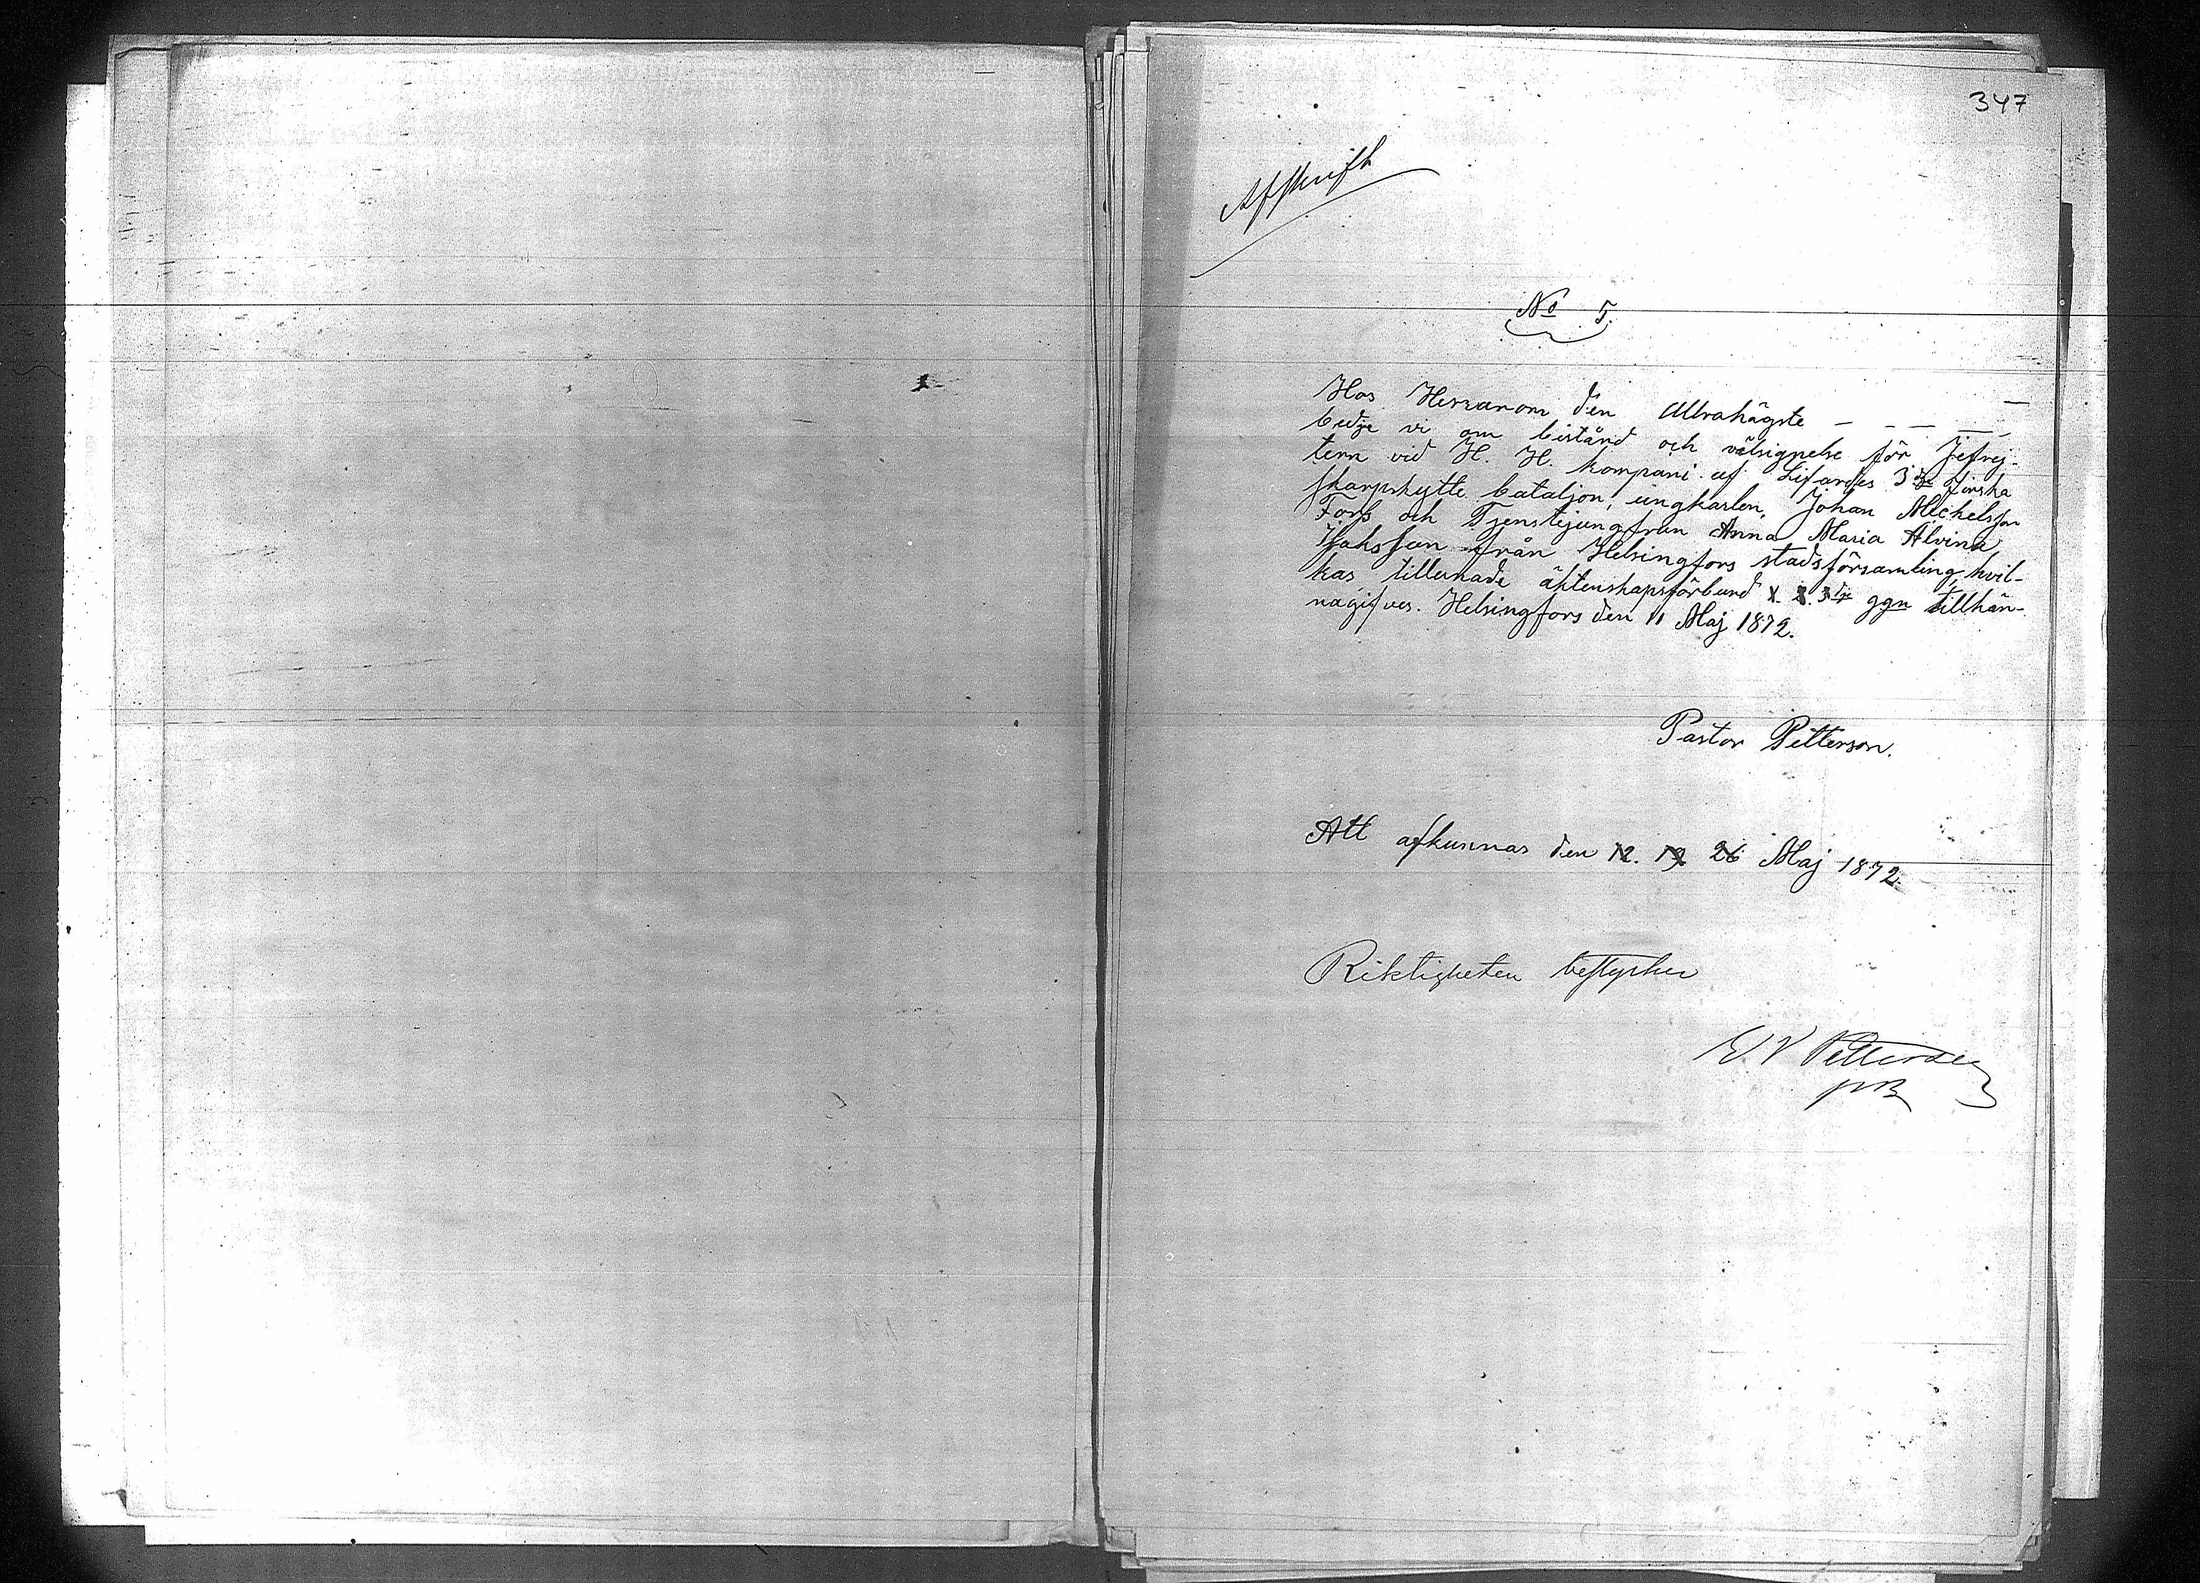 347
Afskrift
No 5.
Hos Herranom den Allrahögste — — — —
bedje vi om bistånd och välsignelse för Jefrej-
tern vid H. H. kompani af Lifgardes 3dje Finska
skarpskytte bataljon, ungkarlen, Johan Michelsson
Forss och Tjenstejungfrun Anna Maria Alvina
Isaksson från Helsingfors stadsförsamling, hvil-
kas tillernade äktenskapsförbund 1. 2. 3dje ggn tillkän-
nagifves. Helsingfors den 11 Maj 1872.
Pastor Petterson.
Att afkunnas den 12. 19 26 Maj 1872.
Riktigheten bestyrker
E V Petterson